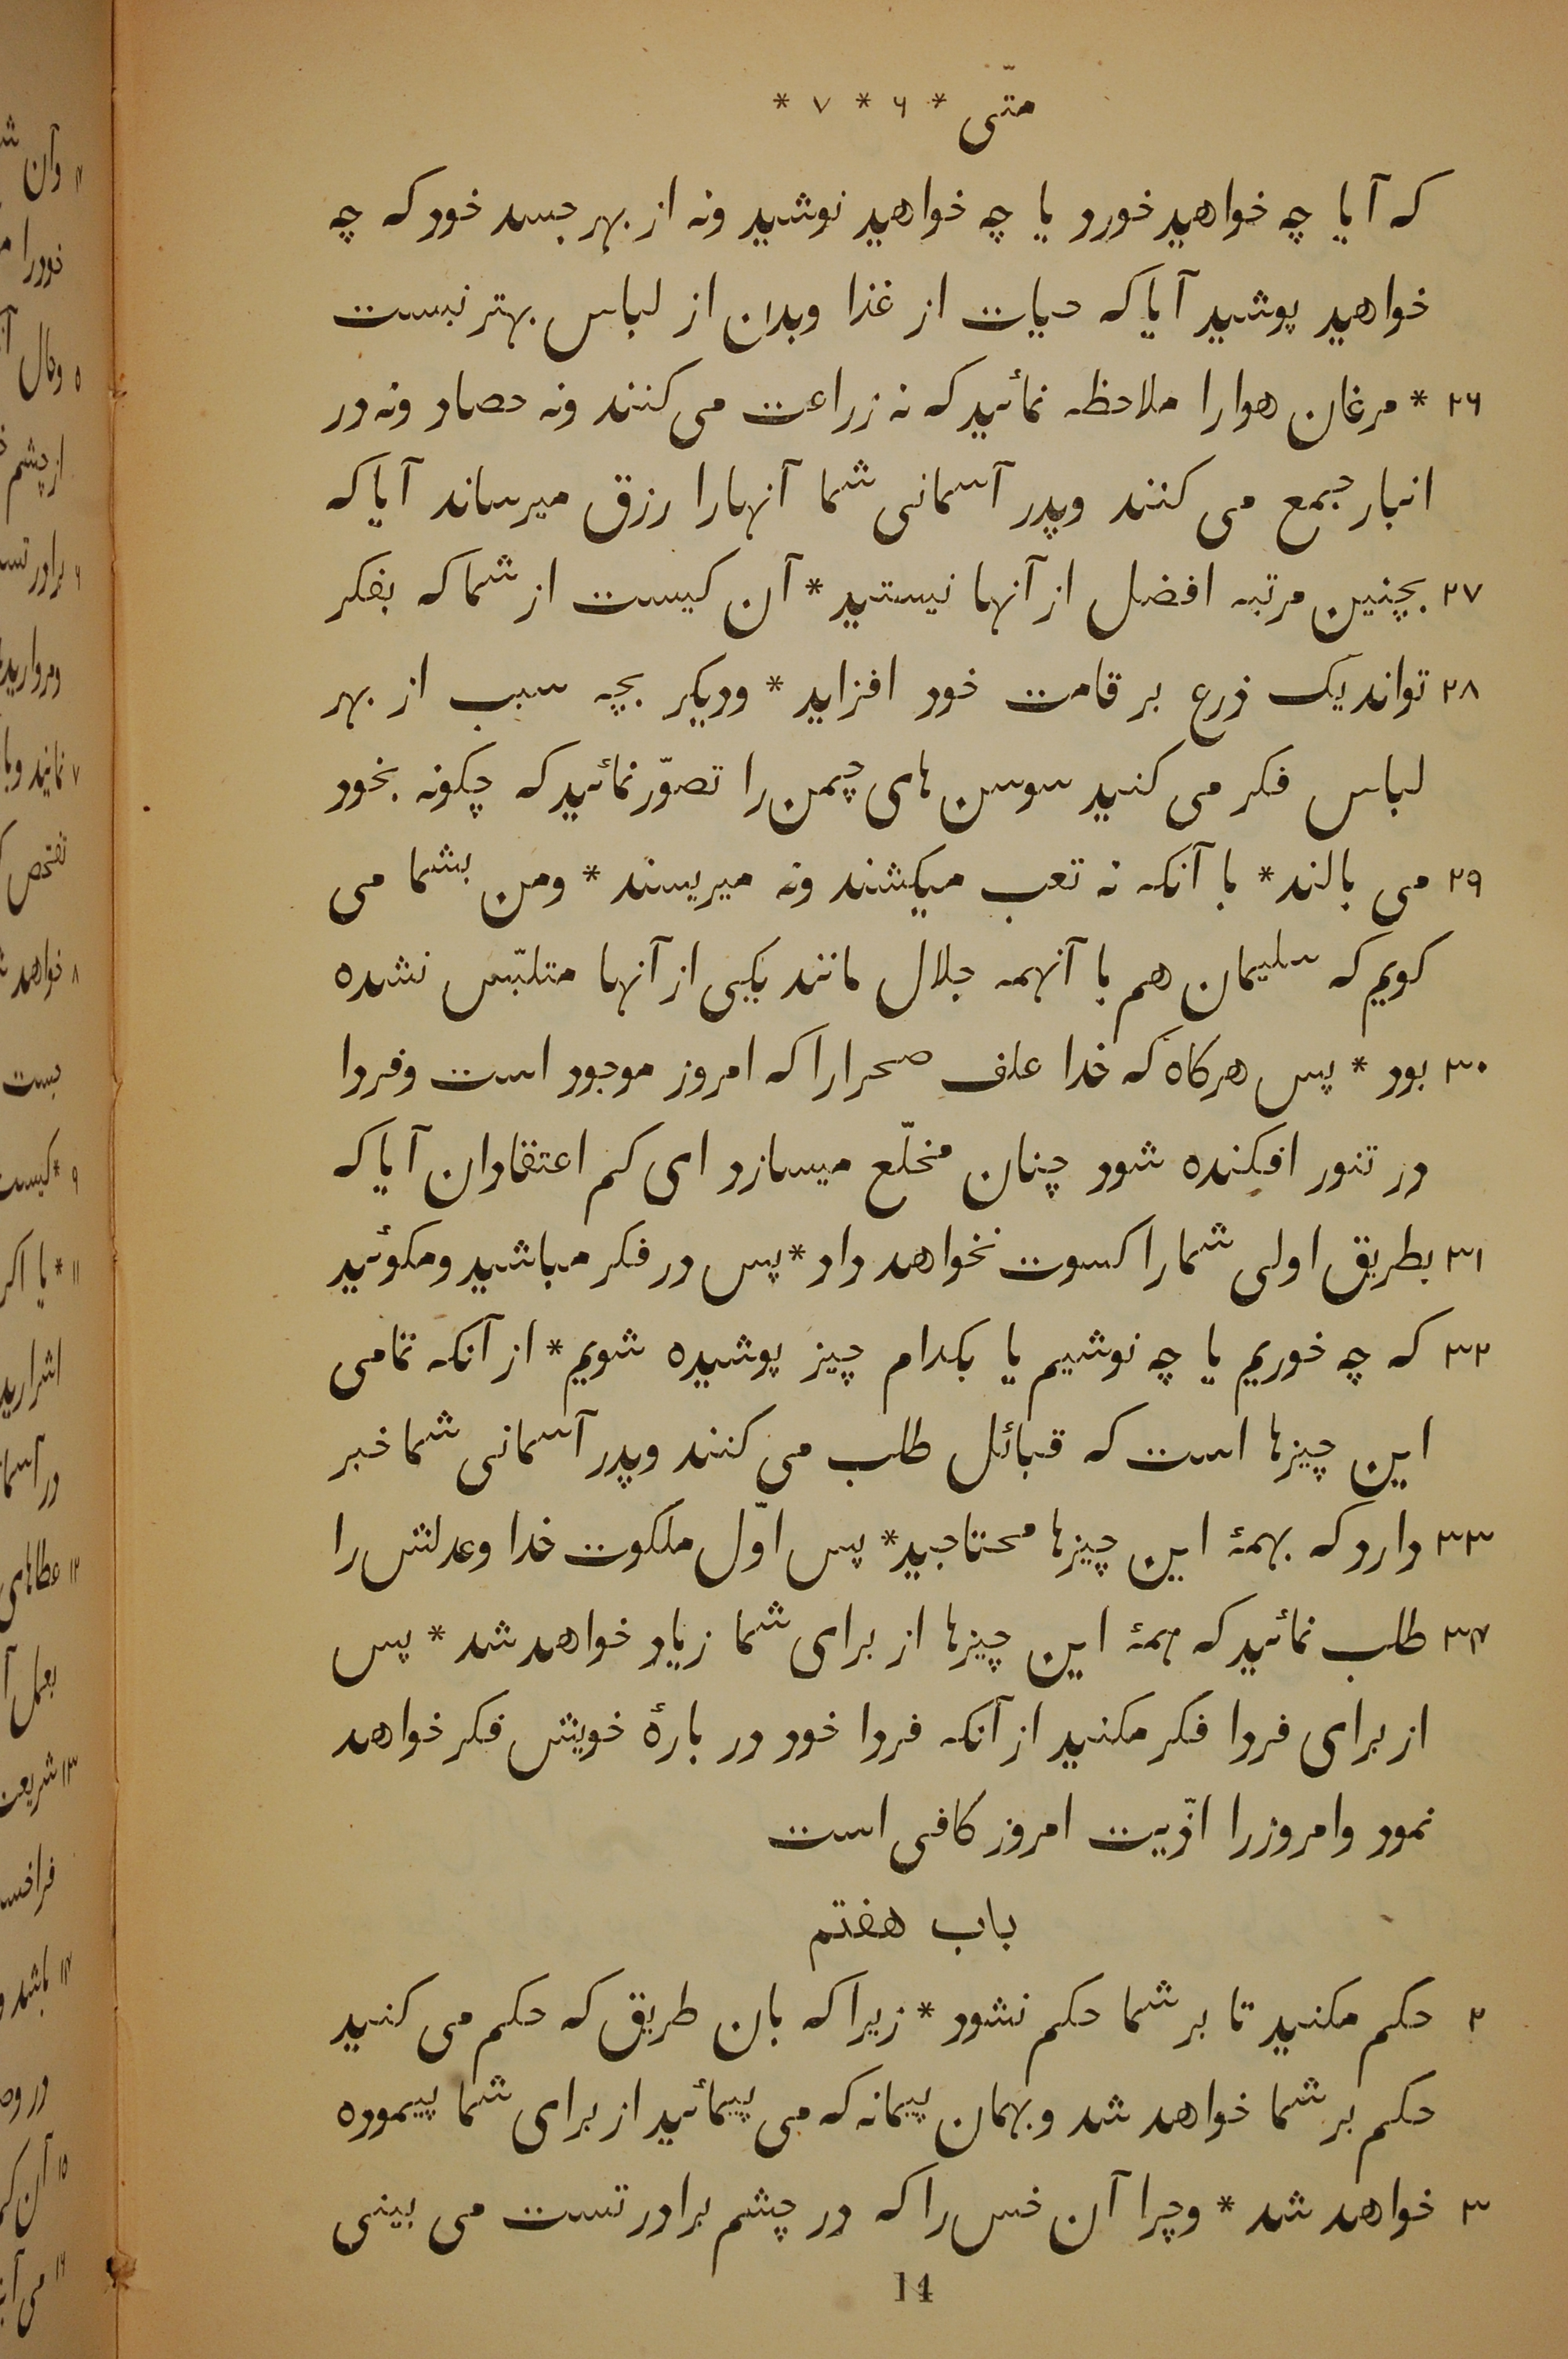 متّی * ۶ * ۷ *
که آیا چه خواهید خورد یا چه خواهید نوشید ونه از بهر جسد خود که چه
خواهید پوشید آیا که حیات از غذا وبدن از لباس بهتر نیست
۲۶ * مرغان هوارا ملاحظه نمائید که نه زراعت می کنند ونه حصاد ونه در
انبار جمع می کنند وپدر آسمانی شما آنهارا رزق میرساند آیا که
۲۷ بچنین مرتبه افضل از آنها نیستید * آن کیست از شما که بفکر
۲۸ تواند یک ذرع بر قامت خود افزاید * ودیکر بچه سبب از بهر
لباس فکر می کنید سوسن های چمن را تصوّر نمائید که چکونه بخود
۲۹ می بالند * با آنکه نه تعب میکشند ونه میریسند * ومن بشما می
کویم که سلیمان هم با آنهمه جلال مانند یکی از آنها متلبّس نشده
۳۰ بود * پس هرکاه که خدا علف صحرارا که امروز موجود است وفردا
در تنور افکنده شود چنان مخلّع میسازد ای کم اعتقادان آیا که
۳۱ بطریق اولی شمارا کسوت نخواهد داد * پس در فکر مباشید ومکوئید
۳۲ که چه خوریم یا چه نوشیم یا بکدام چیز پوشیده شویم * از آنکه تمامی
این چیزها است که قبائل طلب می کنند وپدر آسمانی شما خبر
۳۳ دارد که بهمهٔ این چیزها محتاجید * پس اوّل ملکوت خدا وعدلش را
۳۴ طلب نمائید که همهٔ این چیزها از برای شما زیاد خواهد شد * پس
از برای فردا فکر مکنید از آنکه فردا خود در بارهٔ خویش فکر خواهد
نمود وامروزرا اذّیت امروز کافی است
باب هفتم
۲ حکم مکنید تا بر شما حکم نشود * زیرا که بان طریق که حکم می کنید
حکم بر شما خواهد شد وبهمان پیمانه که می پیمائید از برای شما پیموده
۳ خواهد شد * وچرا آن خس را که در چشم برادر تست می بینی
14